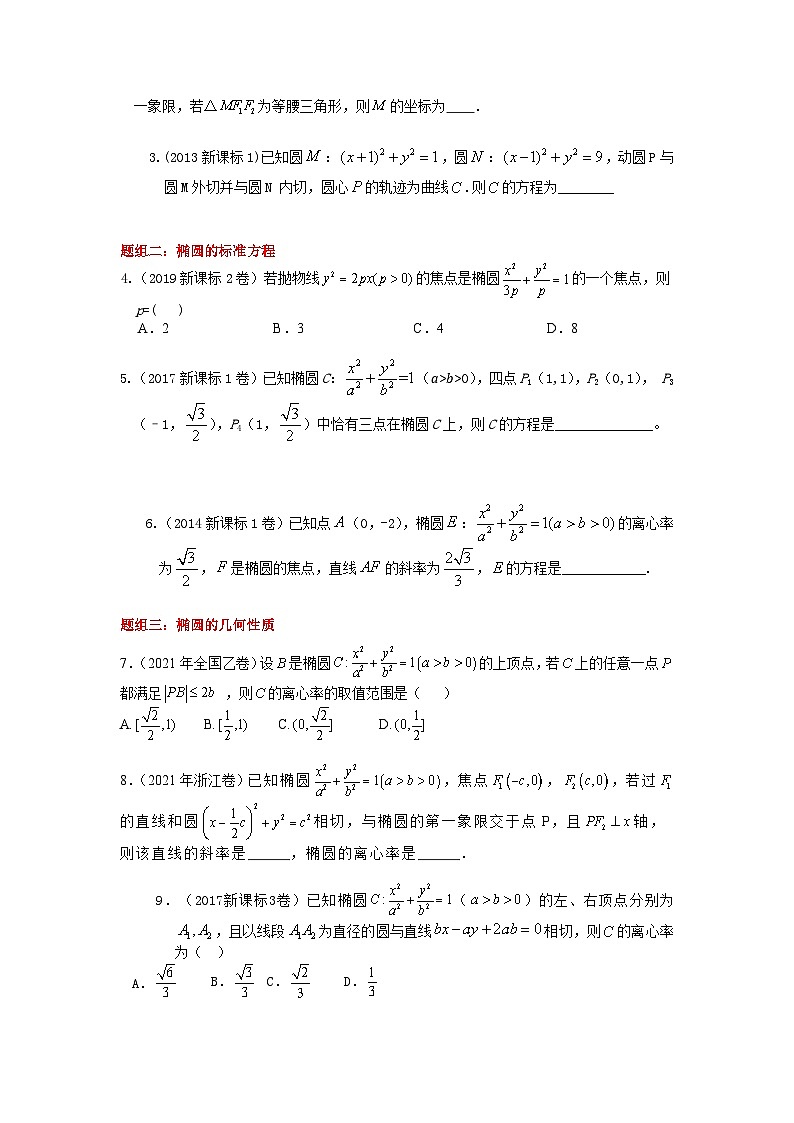 一象限,若△MF₁F₂为等腰三角形,则M的坐标为____.
3.(2013新课标1)已知圆M:(x+1)²+y²=1,圆N:(x−1)²+y²=9,动圆P与
圆M外切并与圆N 内切,圆心P的轨迹为曲线C.则C的方程为________
题组二:椭圆的标准方程
4.(2019新课标2卷)若抛物线y²=2px(p>0)的焦点是椭圆x²/3p+y²/p=1的一个焦点,则
p=( )
A.2 B.3 C.4 D.8
5.(2017新课标1卷)已知椭圆C:x²/a²+y²/b²=1(a>b>0),四点P₁(1,1),P₂(0,1), P₃
(–1,√3/2),P₄(1,√3/2)中恰有三点在椭圆C上,则C的方程是______________。
6.(2014新课标1卷)已知点A(0,-2),椭圆E:x²/a²+y²/b²=1(a>b>0)的离心率
为√3/2,F是椭圆的焦点,直线AF的斜率为2√3/3,E的方程是____________.
题组三:椭圆的几何性质
7.(2021年全国乙卷)设B是椭圆C:x²/a²+y²/b²=1(a>b>0)的上顶点,若C上的任意一点P
都满足|PB|≤2b ,则C的离心率的取值范围是( )
A.[√2/2,1) B.[1/2,1) C.(0,√2/2] D.(0,1/2]
8.(2021年浙江卷)已知椭圆x²/a²+y²/b²=1(a>b>0),焦点F₁(−c,0),F₂(c,0),若过F₁
的直线和圆(x−1/2c)²+y²=c²相切,与椭圆的第一象限交于点P,且PF₂⊥x轴,
则该直线的斜率是______,椭圆的离心率是______.
9.(2017新课标3卷)已知椭圆C:x²/a²+y²/b²=1(a>b>0)的左、右顶点分别为
A₁,A₂,且以线段A₁A₂为直径的圆与直线bx−ay+2ab=0相切,则C的离心率
为( )
A.√6/3 B.√3/3 C.√2/3 D.1/3